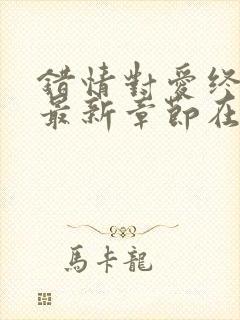 錯情對愛終
最新章節在
馬卡龍